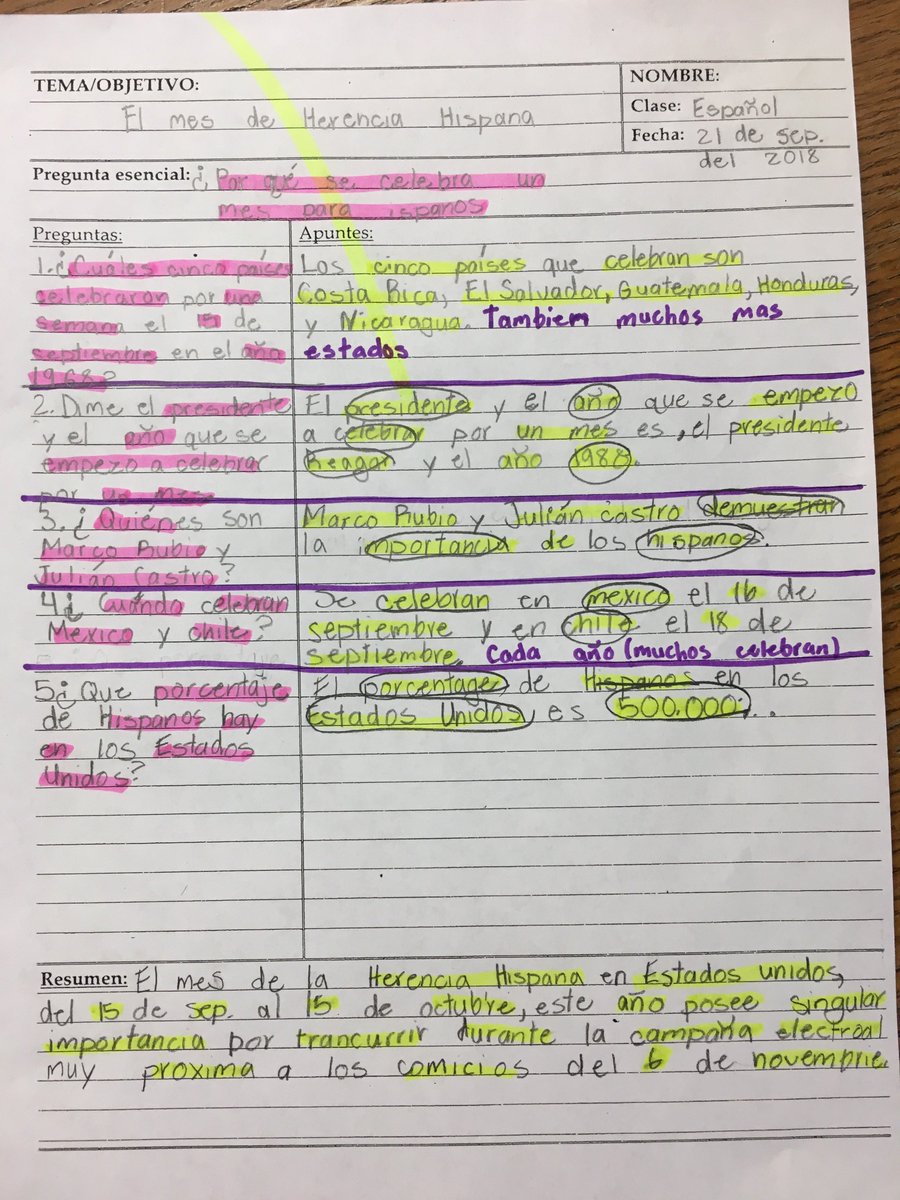 TEMA/OBJETIVO:
El mes de Herencia Hispana
NOMBRE:
Clase: Español
Fecha: 21 de sep.
del 2018
Pregunta esencial: ¿Por qué se celebra un
mes para ispanos
Preguntas:
1.¿Cuáles cinco países
celebraron por una
semana el 15 de
septiembre en el año
1968?
2. Dime el presidente
y el año que se
empezo a celebrar
por un mes
3. ¿Quiénes son
Marco Rubio y
Julián Castro?
4¿ Cuándo celebran
Mexico y chile?
5¿Que porcentaje
de Hispanos hay
en los Estados
Unidos?
Apuntes:
Los cinco países que celebran son
Costa Rica, El Salvador, Guatemala, Honduras,
y Nicaragua. Tambiem muchos mas
estados
El presidente y el año que se empezo
a celebrar por un mes es, el presidente
Reagan y el año 1988.
Marco Rubio y Julián castro demuestran
la importancia de los hispanos.
Se celebran en mexico el 16 de
septiembre y en chile el 18 de
septiembre. Cada año (muchos celebran)
El porcentage de Hispanos en los
Estados Unidos, es 500.000...
Resumen: El mes de la Herencia Hispana en Estados unidos,
del 15 de sep. al 15 de octubre, este año posee singular
importancia por trancurrir durante la campaña electroal
muy proxima a los comicios del 6 de novembrie.